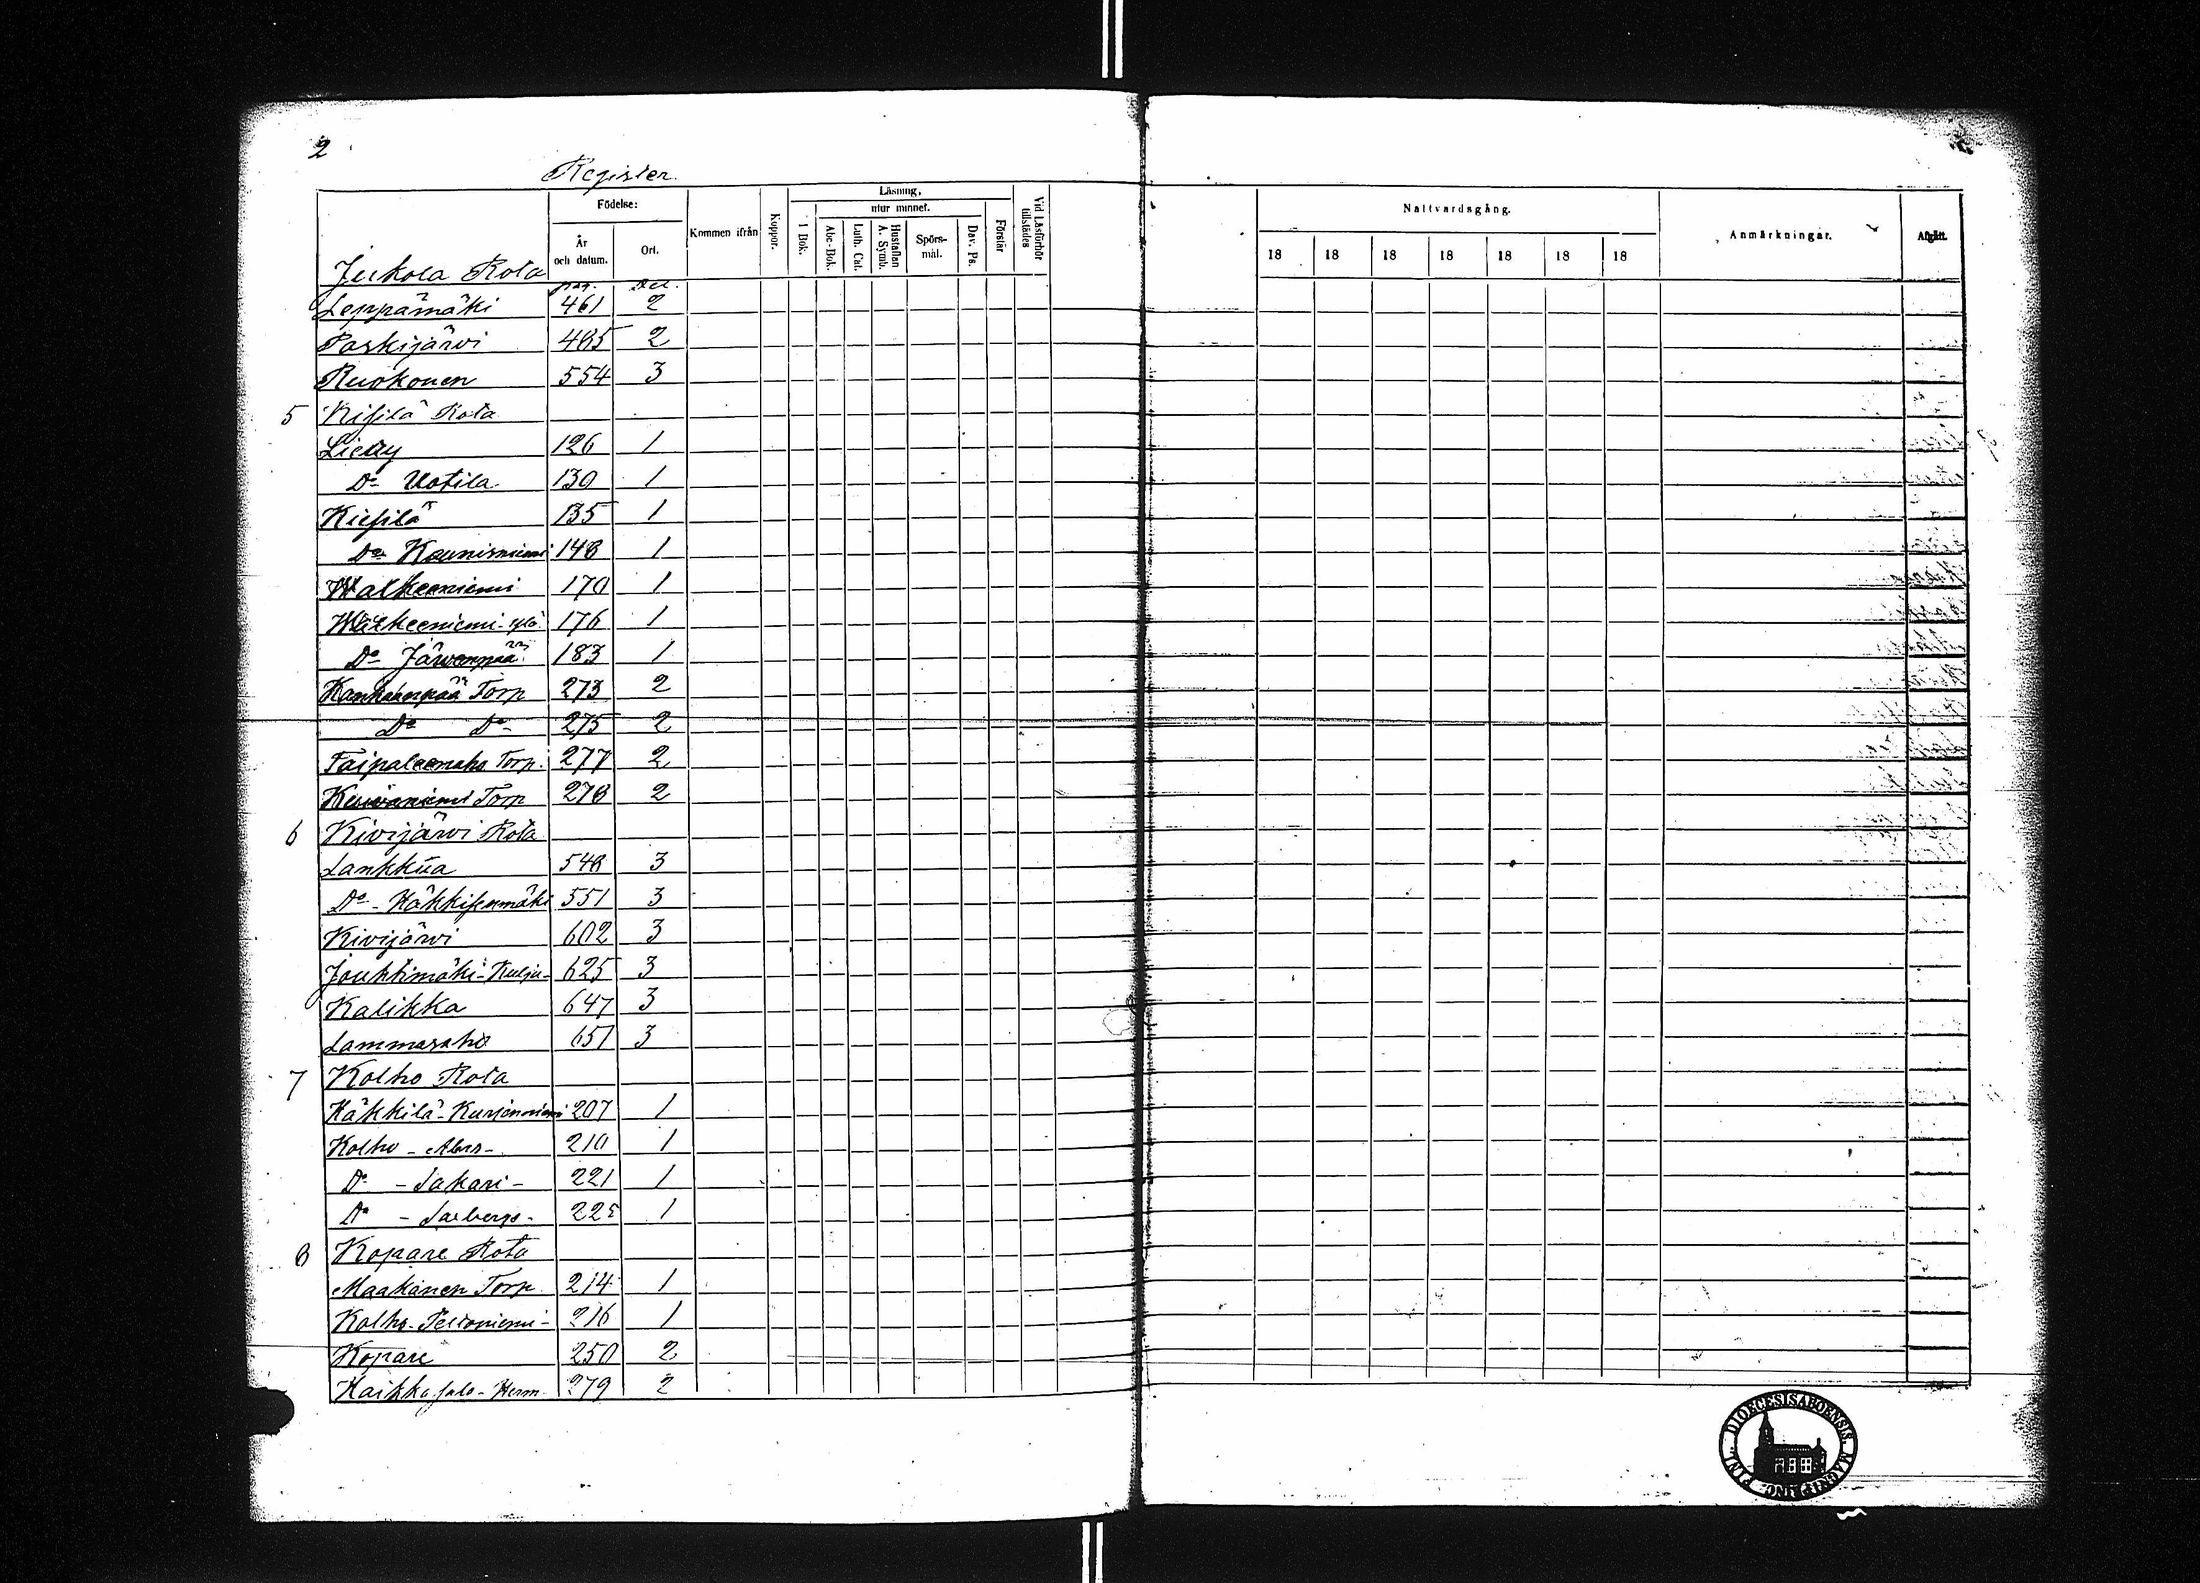 2
Register.
Födelse:
År och datum.
Ort.
Kommen ifrån
Koppor.
Läsning,
utur minnet.
I Bok.
Abc-Bok.
Luth. Cat.
Hustaflan A. Symb.
Spörs-mål.
Dav. Ps.
Förstår
Vid Läsförhör tillstädes
Nattvardsgång.
18 18 18 18 18 18 18
Anmärkningar.
Afgått.
Jukola Rota pag. Del.
Leppämäki 461 2
Paskijärvi 485 2
Ruokonen 554 3
5 Kisilä Rota
Lieay 126 1
Do Uotila 130 1
Kiesilä 135 1
Do Kaunisniemi 148 1
Walkeeniemi 170 1
Walkeeniemi-ylä- 176 1
Do Järvenpää 183 1
Kankaanpää Torp 273 2
Do Do 275 2
Taipaleenaho Torp. 277 2
Torp 278 2
6 Kivijärvi Rota
Lankkua 548 3
Do - Käkkisenmäki 551 3
Kivijärvi 602 3
Jouhtimäki-Kulju- 625 3
Kalikka 647 3
Lammasaho 651 3
7 Kolho Rota
Käkkilä-Kurjenniemi 207 1
Kolho - Abers - 210 1
Do - Sakari - 221 1
Do - 225 1
8 Kopare Rota
Maakanen Torp 214 1
Kolho - Peltoniemi - 216 1
Kopare 250 2
279 2
DIOECESIS ABOENSIS. MAGNI PRINC. FINL.